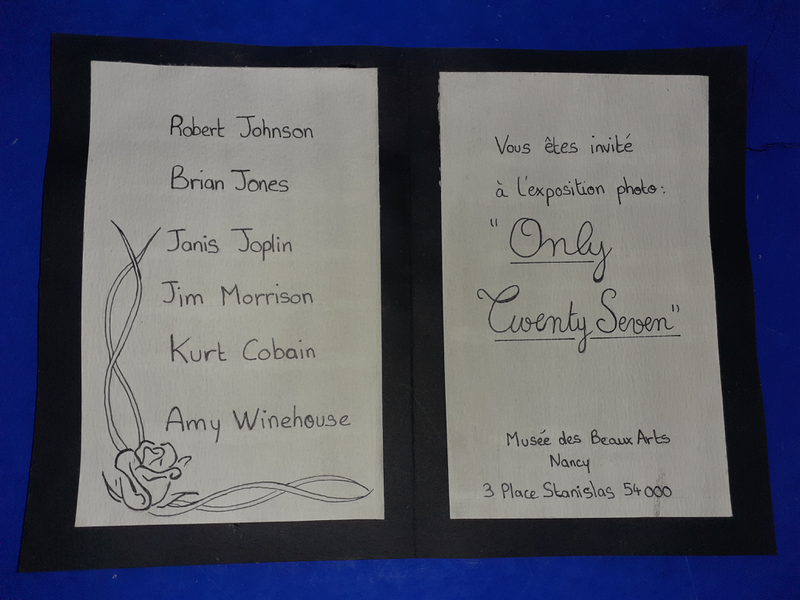 Robert Johnson
Brian Jones
Janis Joplin
Jim Morrison
Kurt Cobain
Amy Winehouse
Vous êtes invité
à l'exposition photo:
"Only
Twenty Seven"
Musée des Beaux Arts
Nancy
3 Place Stanislas 54000